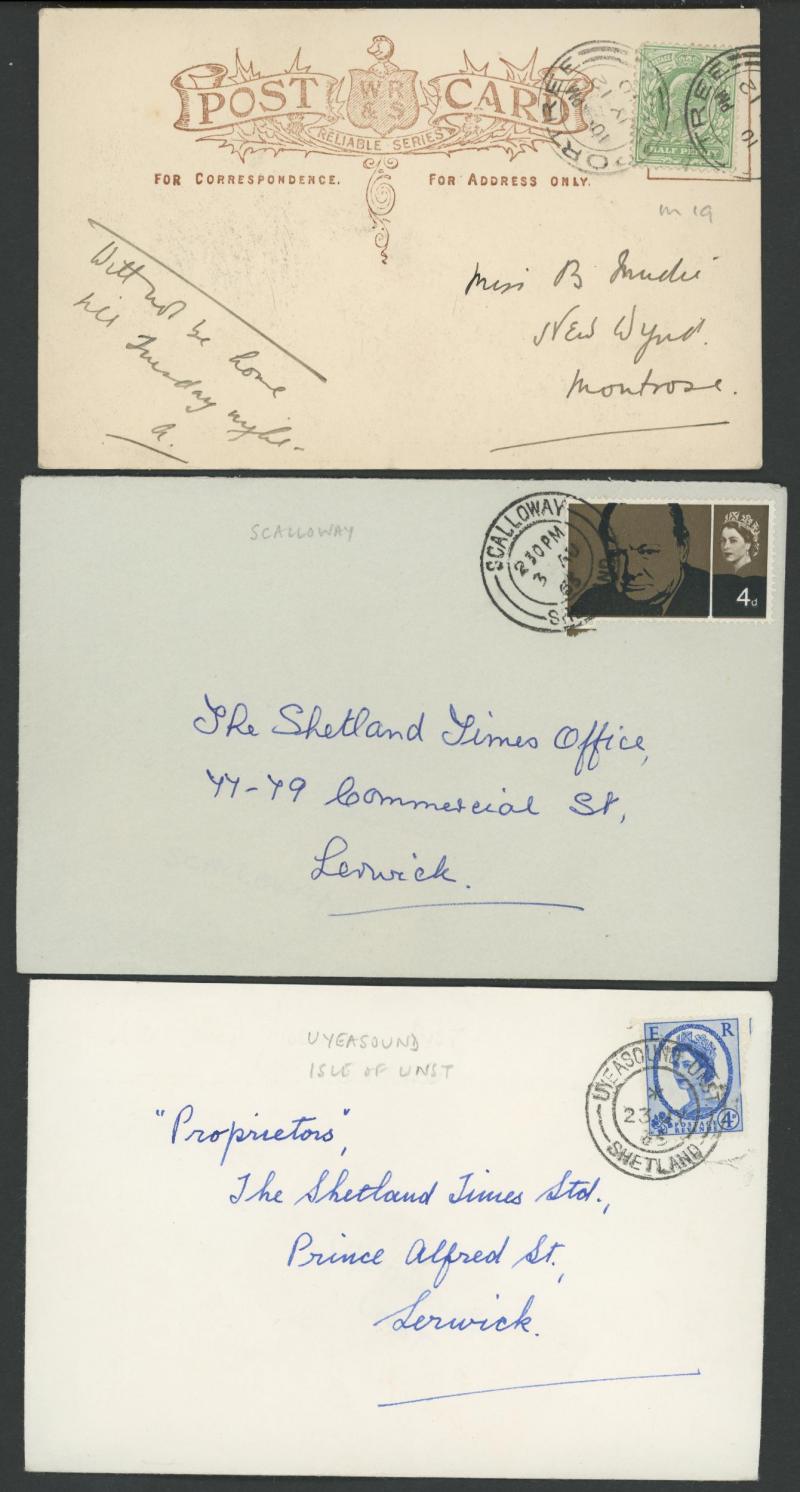 POST CARD
WR & S
RELIABLE SERIES
FOR CORRESPONDENCE. FOR ADDRESS ONLY.
PORTREE
HALF PENNY
m 19
Will not be home
till Tuesday night-
a.
Miss B Mudie
New Wynd.
Montrose.
SCALLOWAY
SCALLOWAY
2 30 PM
3 AU
65
4d
The Shetland Times Office,
77-79 Commercial St,
Lerwick.
UYEASOUND
ISLE OF UNST
E R
UYEASOUND UNST
23
SHETLAND
4D
POSTAGE
REVENUE
"Proprietors",
The Shetland Times Ltd.,
Prince Alfred St.,
Lerwick.